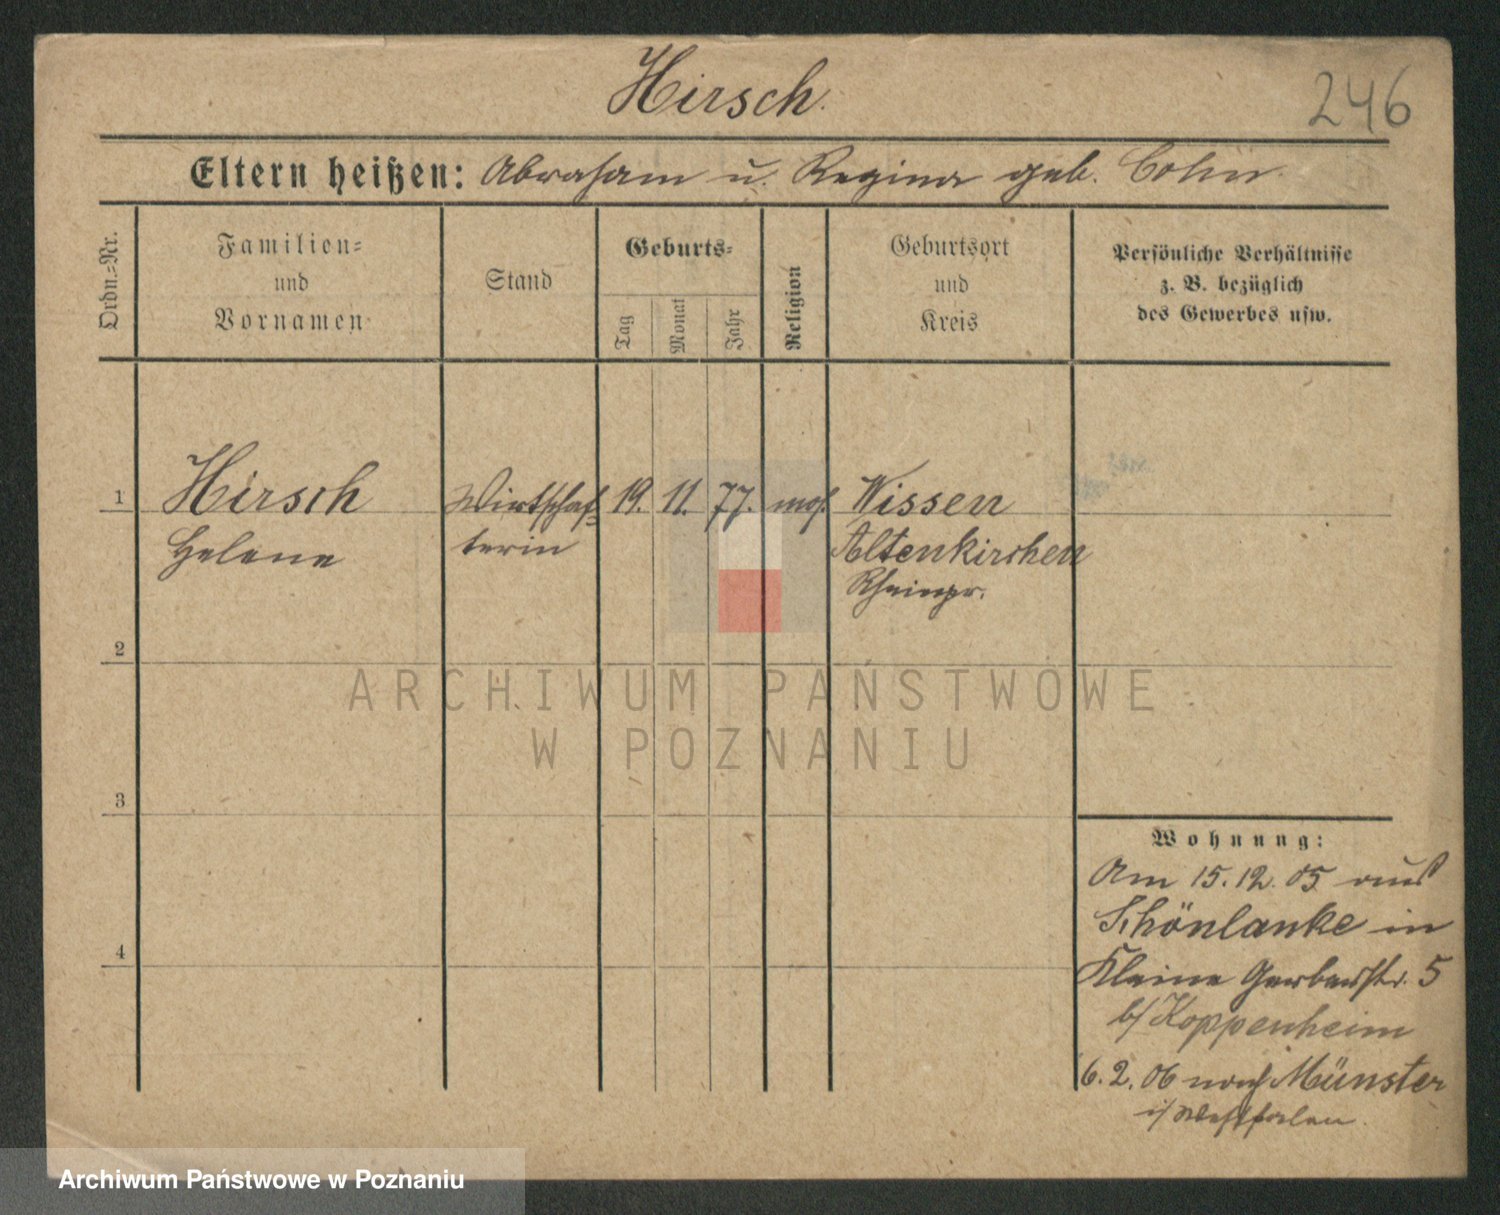 Hirsch.
246
Eltern heißen: Abraham u. Regina geb. Cohn.
Ordn.-Nr.
Familien-
und
Vornamen
Stand
Geburts-
Tag
Monat
Jahr
Religion
Geburtsort
und
Kreis
Persönliche Verhältnisse
z. B. bezüglich
des Gewerbes usw.
1 Hirsch Wirtschaf- 19. 11. 77. mos. Wissen
Helene terin Altenkirchen
Rheinpr.
2
ARCHIWUM PAŃSTWOWE
W POZNANIU
3
Wohnung:
Am 15.12.05 aus
Schönlanke in
4
Kleine Gerberstr. 5
b/ Koppenheim
6.2.06 nach Münster
i/ Westfalen.
Archiwum Państwowe w Poznaniu